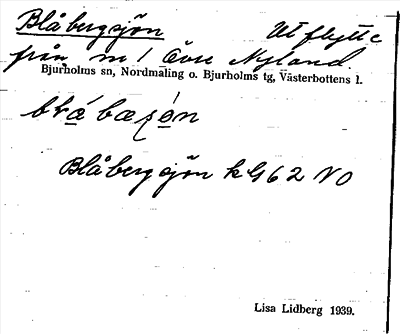 Blåbergsjön Utflytte
från m/ Övre Nyland
Bjurholms sn, Nordmaling o. Bjurholms tg, Västerbottens l.
Blåbergsjön k G62 NO
Lisa Lidberg 1939.